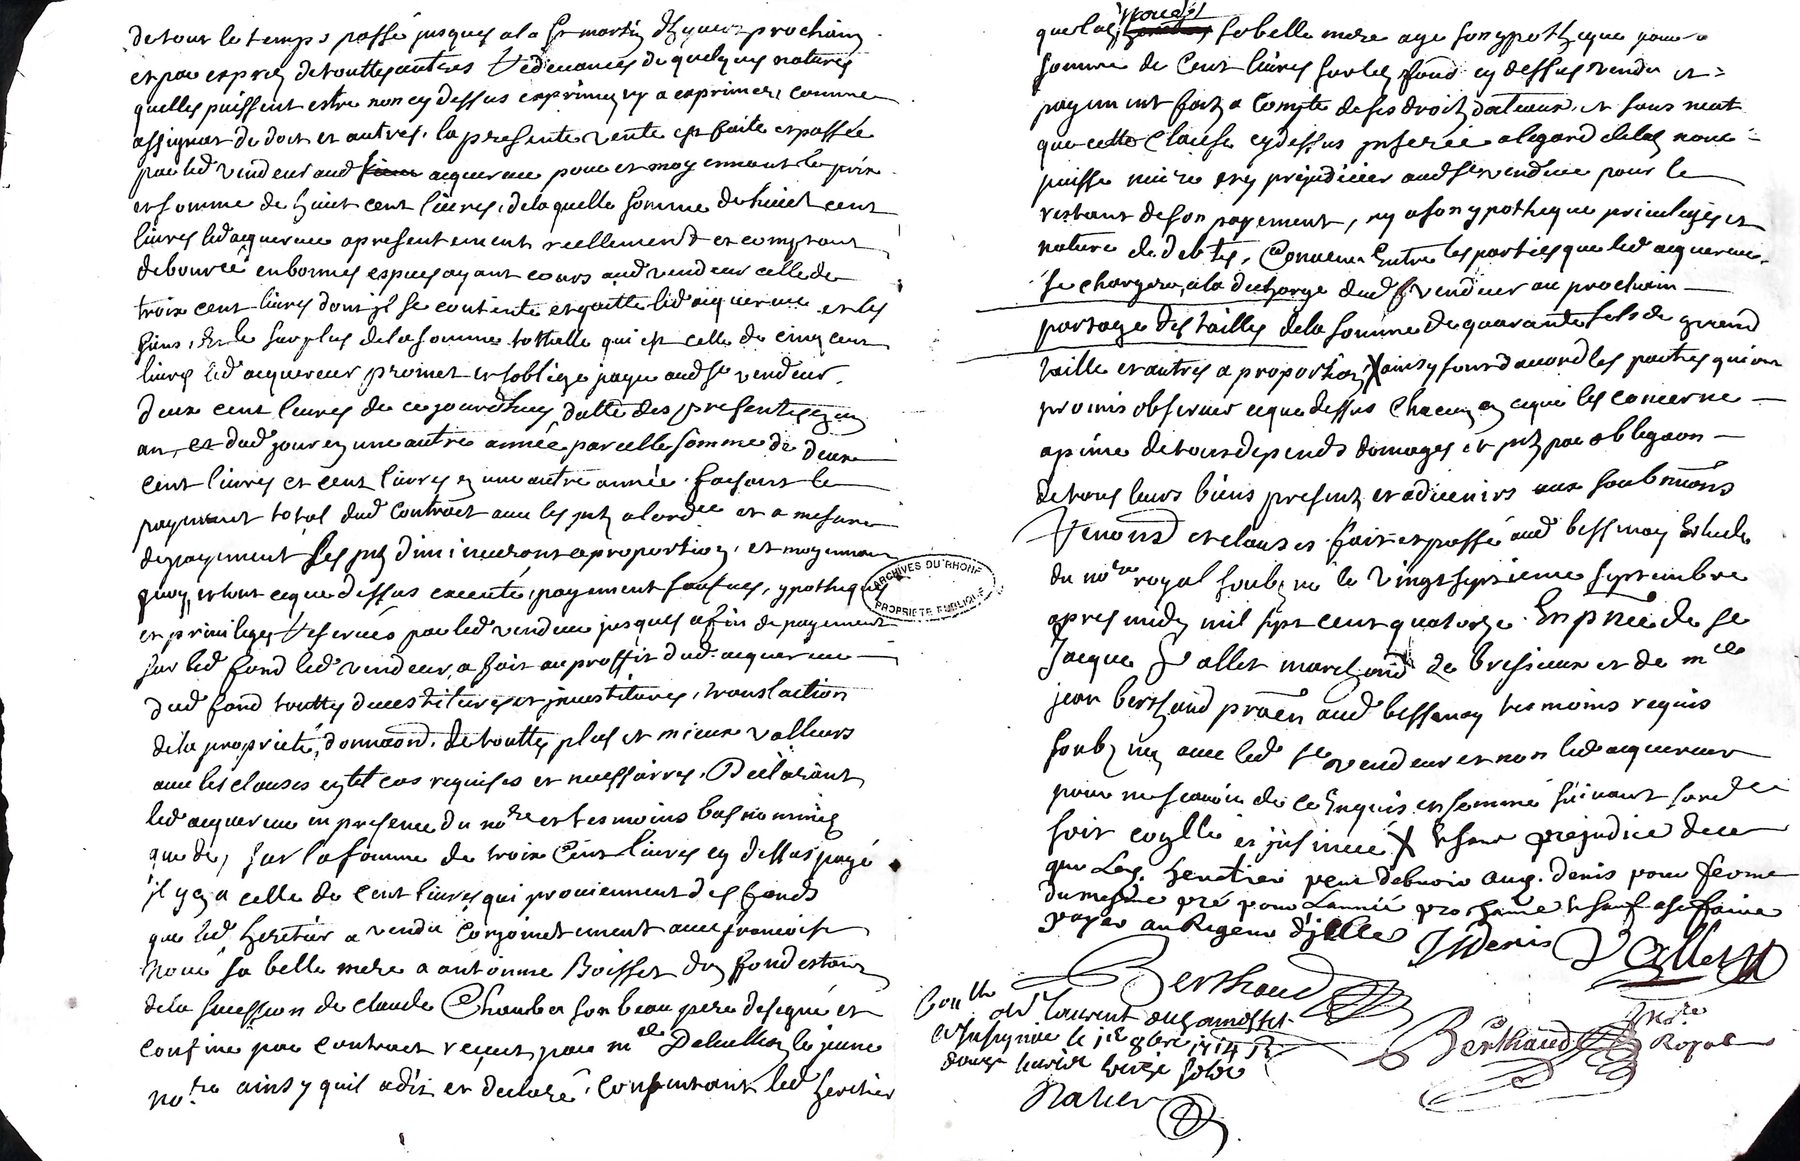 de tout le temps passé jusques a la St martin d'hyver prochain
et par exprez de touttes autres redevances de quelques natures
quelles puissent estre non cy dessus exprimez ny a exprimer, comme
assignat de dot et autres. la presente vente est faite et passée
par led vendeur aud acquereur pour et moyennant le prix
et somme de huict cent livres, de laquelle somme de huict cent
livres led acquereur a presentement reellement et comptant
debourcé en bonnes espices ayant cours aud vendeur celle de
troix cent livres dont il se contente et quitte led acquereur et les
siens, Et le surplus de la somme tottalle qui est celle de cinq cent
livres led acquereur promet et soblige payer aud sr vendeur.
deux cent livres de ce jourdhuy datte des presentes en un
an, et dud jour en une autre année pareille somme de deux
cent livres et cent livres en une autre année. faisant le
payement total dud contract avec les jntz a lordre et a mesure
de payement les jntz diminueront a proportion, et moyennant
quoy, et tout ce que dessus executé, payement faict, ypotheques
et privileges reservés par led vendeur jusques a fin de payement
sur led fond led vendeur a fait au proffit dud acquereur
dud fond touttes devestitures et jnvestitures, translation
de la proprieté, donnaon, de toutte plus et mieux valleurs
avec les clauses en tel cas requises et necessaires, Declarant
led acquereur en presence du nore et tesmoins bas nommés
que de, sur la somme de troix cent livres cy dessus payé
il y en a celle de cent livres qui proviennent des fonds
que led heritier a vendu conjoinctement avec francoise
Noué sa belle mere a antoinne Boisset du fond estant
de la succession de claude Chambe son beau pere designé et
confiné par contract receu par me Delullion le jeune
nore ainsy quil a dit et declaré, consentant led heritier
Noué
que lad sa belle mere aye son ypotheque pour
somme de cent livres sur les fond cy dessus vendu et
payement fait a compte de ses droitz dotaux, et sans neant
que cette clause cy dessus jnserée a legard de lad noué
puisse nuire ny prejudicier aud sr vendeur pour le
restant de son payement, ny a son ypotheque privileges et
nature de debtes. Convenu Entre les parties que led acquereur
se chargera, a la decharge dud sr vendeur au prochain
partage des tailles de la somme de quarante sols de grand
taille et autres a proportion X ainsy sont daccord les parties qui ont
promis observer ce que dessus chacun en ce qui les concerne
a peine de tous depends domages et jntz par obligaon
de tous leurs biens presentz et advenirs aux soubmions
renonds et clauses. fait et passé aud bessenay Estude
du nore royal soubzné le vingt septieme septembre
apres midy mil sept cent quatorze. En pnce de sr
Jacque Vallet marchand de bresieux et de me
jean berthaud praen aud bessenay tesmoins requis
soubznez avec led sr vendeur et non led acquereur
pour ne scavoir de ce Enquis et sommé suivant lordce
soit coyllé et jnsinué X Et sans prejudice de ce
que led heritier peut debvoir aud. denis pour ferme
du mesme pré pour Lannée prochaine Et sauf a se faire
payer au Regeur d'jcelles
JM denis Vallet
Berthaud
Coulle
a St laurent de chamosset
et Insignué le jer 8bre 1714 R
douze livre treize sols
Ratier
Berthaud
nore
Royal
ARCHIVES DU RHONE
PROPRIETE PUBLIQUE